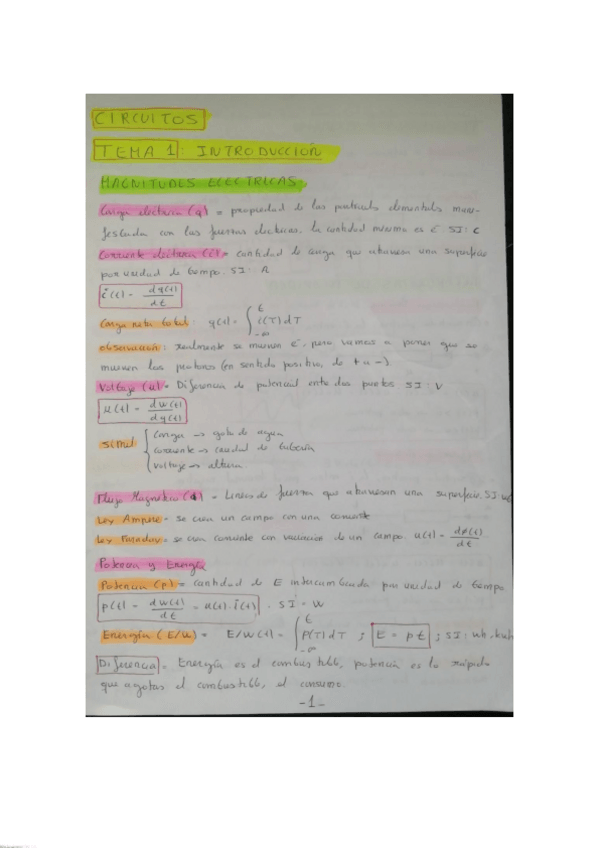 CIRCUITOS
TEMA 1: INTRODUCCIÓN
MAGNITUDES ELECTRICAS
Carga electrica (q) = propiedad de las particulas elementales mani-
festada con las fuerzas electricas. la cantidad minima es é SI: C
Corriente electrica (i) = cantidad de carga que atraviesa una superficie
por unidad de tiempo. SI: A
i(t) = dq(t)/dt
Carga neta total: q(t) = ∫_{-∞}^{t} i(T) dT
observación: realmente se mueven é, pero vamos a poner que se
mueven los protones (en sentido positivo, de + a -)
Voltaje (u) = Diferencia de potencial entre dos puntos SI: V
u(t) = dw(t)/dq(t)
Simil { Carga → gota de agua
Corriente → caudal de tubería
Voltaje → altura
Flujo Magnético (ϕ) = Lineas de fuerza que atraviesan una superficie. SI: wb
Ley Ampere = se crea un campo con una corriente
Ley Faraday = se crea corriente con variacion de un campo. u(t) = dϕ(t)/dt
Potencia y Energía
Potencia (p) = cantidad de E intercambiada por unidad de tiempo
p(t) = dw(t)/dt = u(t)·i(t) . SI = W
Energía (E/W) = E/w(t) = ∫_{-∞}^{t} p(T) dT ; E = p t ; SI: wh, kwh
Diferencia = Energía es el combustible, potencia es lo rápido
que agotas el combustible, el consumo.
-1-